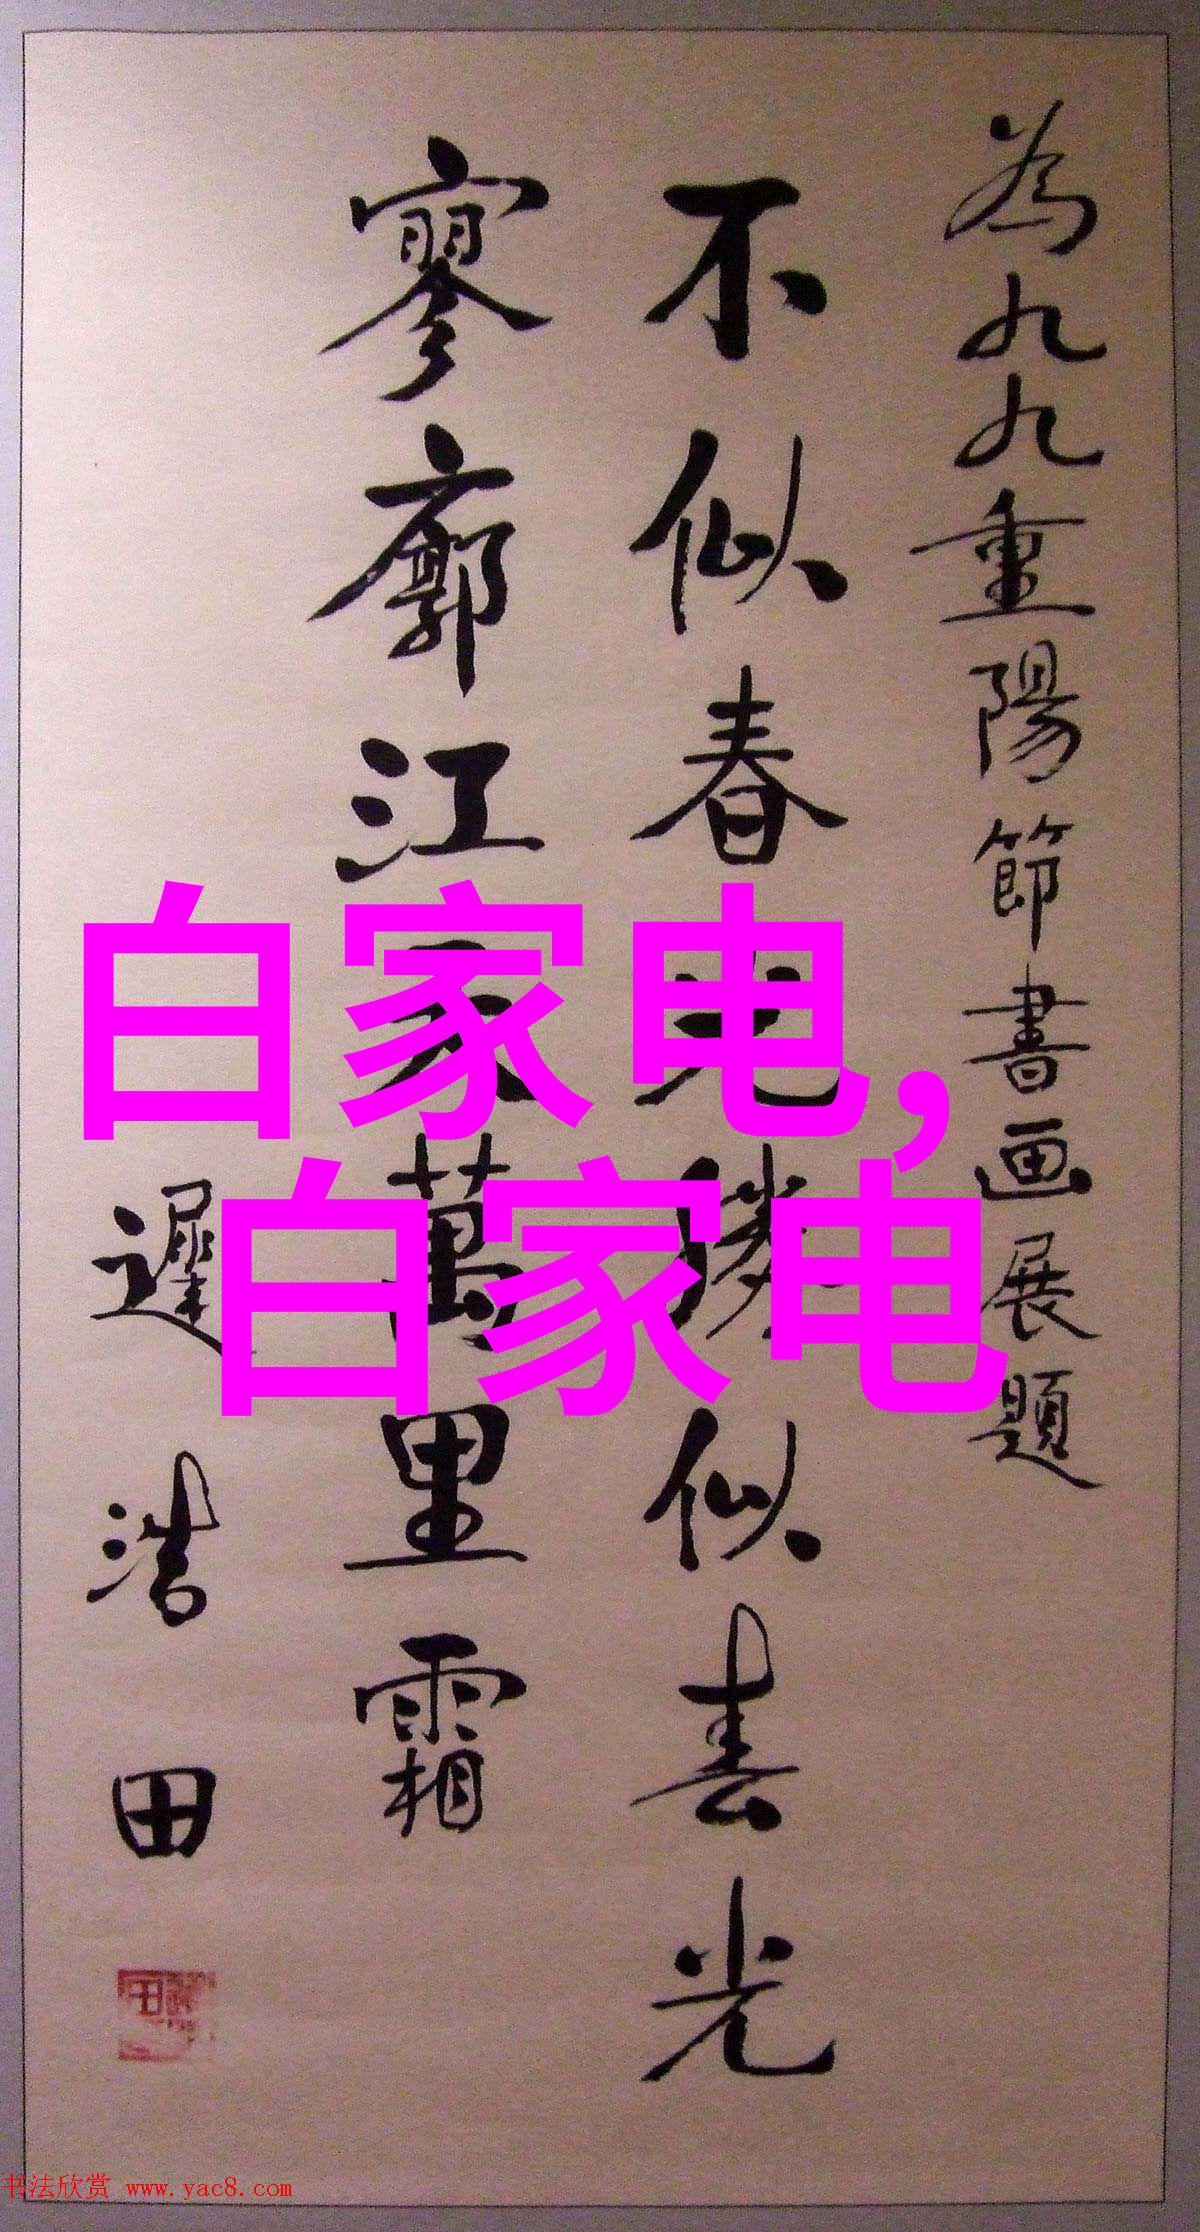 為九九重陽節書画展題
不似春光勝似春光
寥廓江天萬里霜
遲浩田
白家电,
白家电
书法欣赏 www.yac8.com